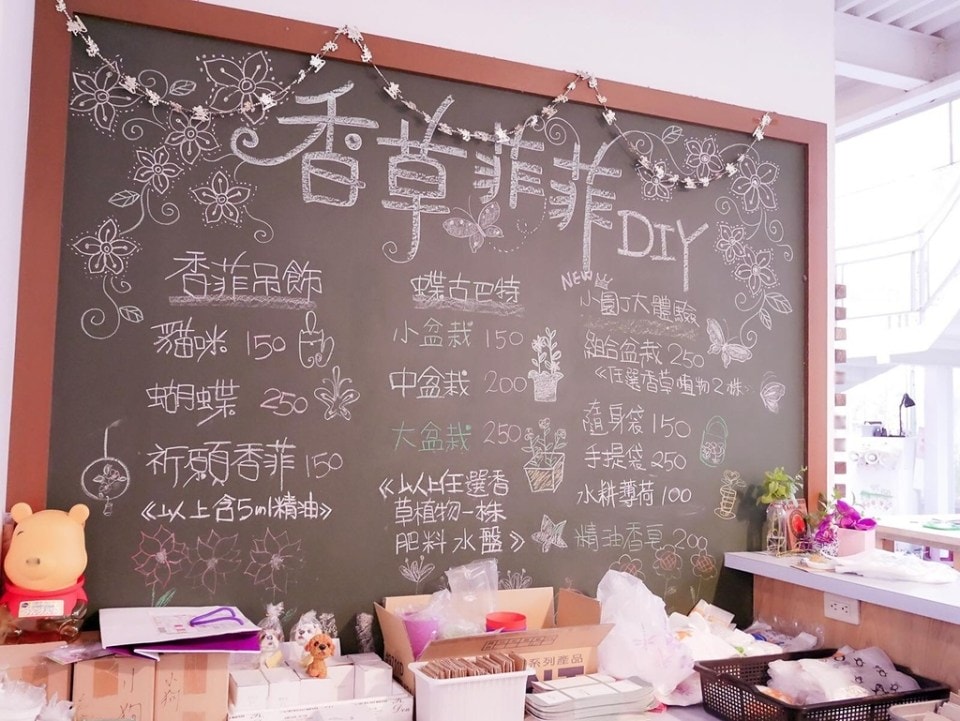 香草菲菲 DIY
香菲吊飾
貓咪 150
蝴蝶 250
祈願香菲 150
《以上含5ml精油》
蝶古巴特
小盆栽 150
中盆栽 200
大盆栽 250
《以上任選香
草植物一株
肥料水盤》
NEW
小園丁大體驗
組合盆栽 250
《任選香草植物2株
隨身袋 150
手提袋 250
水耕薄荷 100
精油香草 200
系列產品